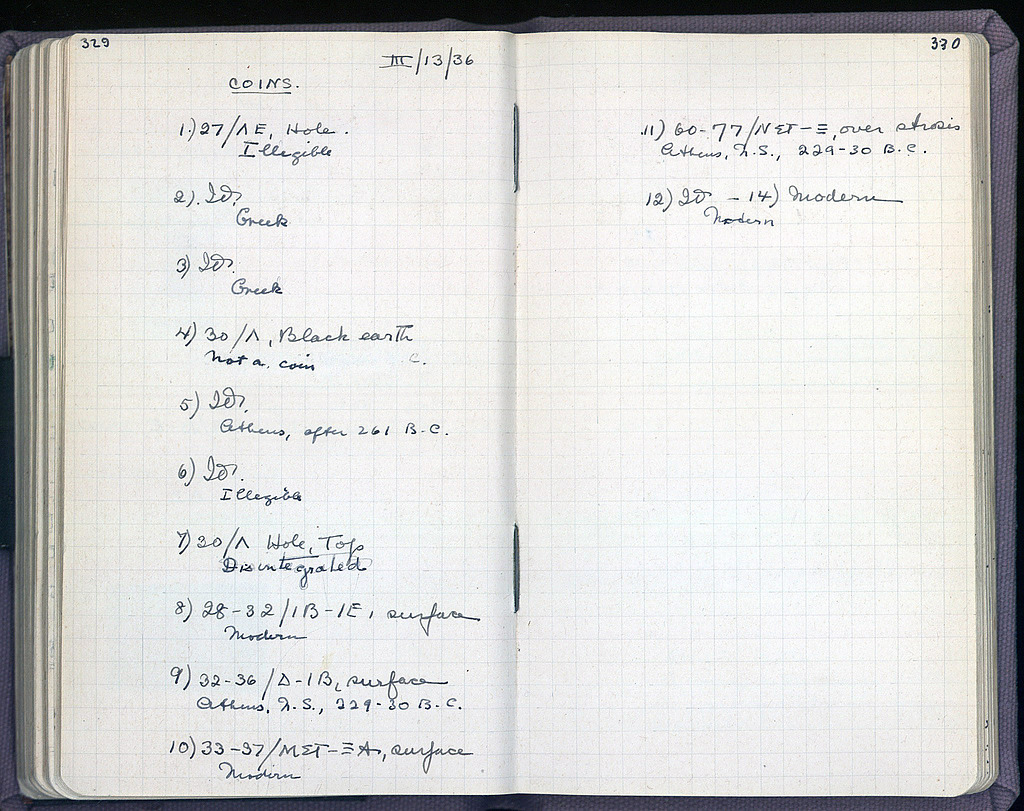 329
III/13/36
COINS.
1) 27/ΛE, Hole.
Illegible
2). Id.
Greek
3) Id.
Greek
4) 30/Λ, Black earth
Not a coin C.
5) Id.
Athens, after 261 B.C.
6) Id.
Illegible
7) 30/Λ Hole, Top
Disintegrated
8) 28-32/IB-IE, surface
Modern
9) 32-36/Δ-IB, surface
Athens, N.S., 229-30 B.C.
10) 33-37/ΜΣΤ-ΞΑ, surface
Modern
330
11) 60-77/ΝΣΤ-Ξ, over strosis
Athens, N.S., 229-30 B.C.
12) Id - 14) Modern
Modern